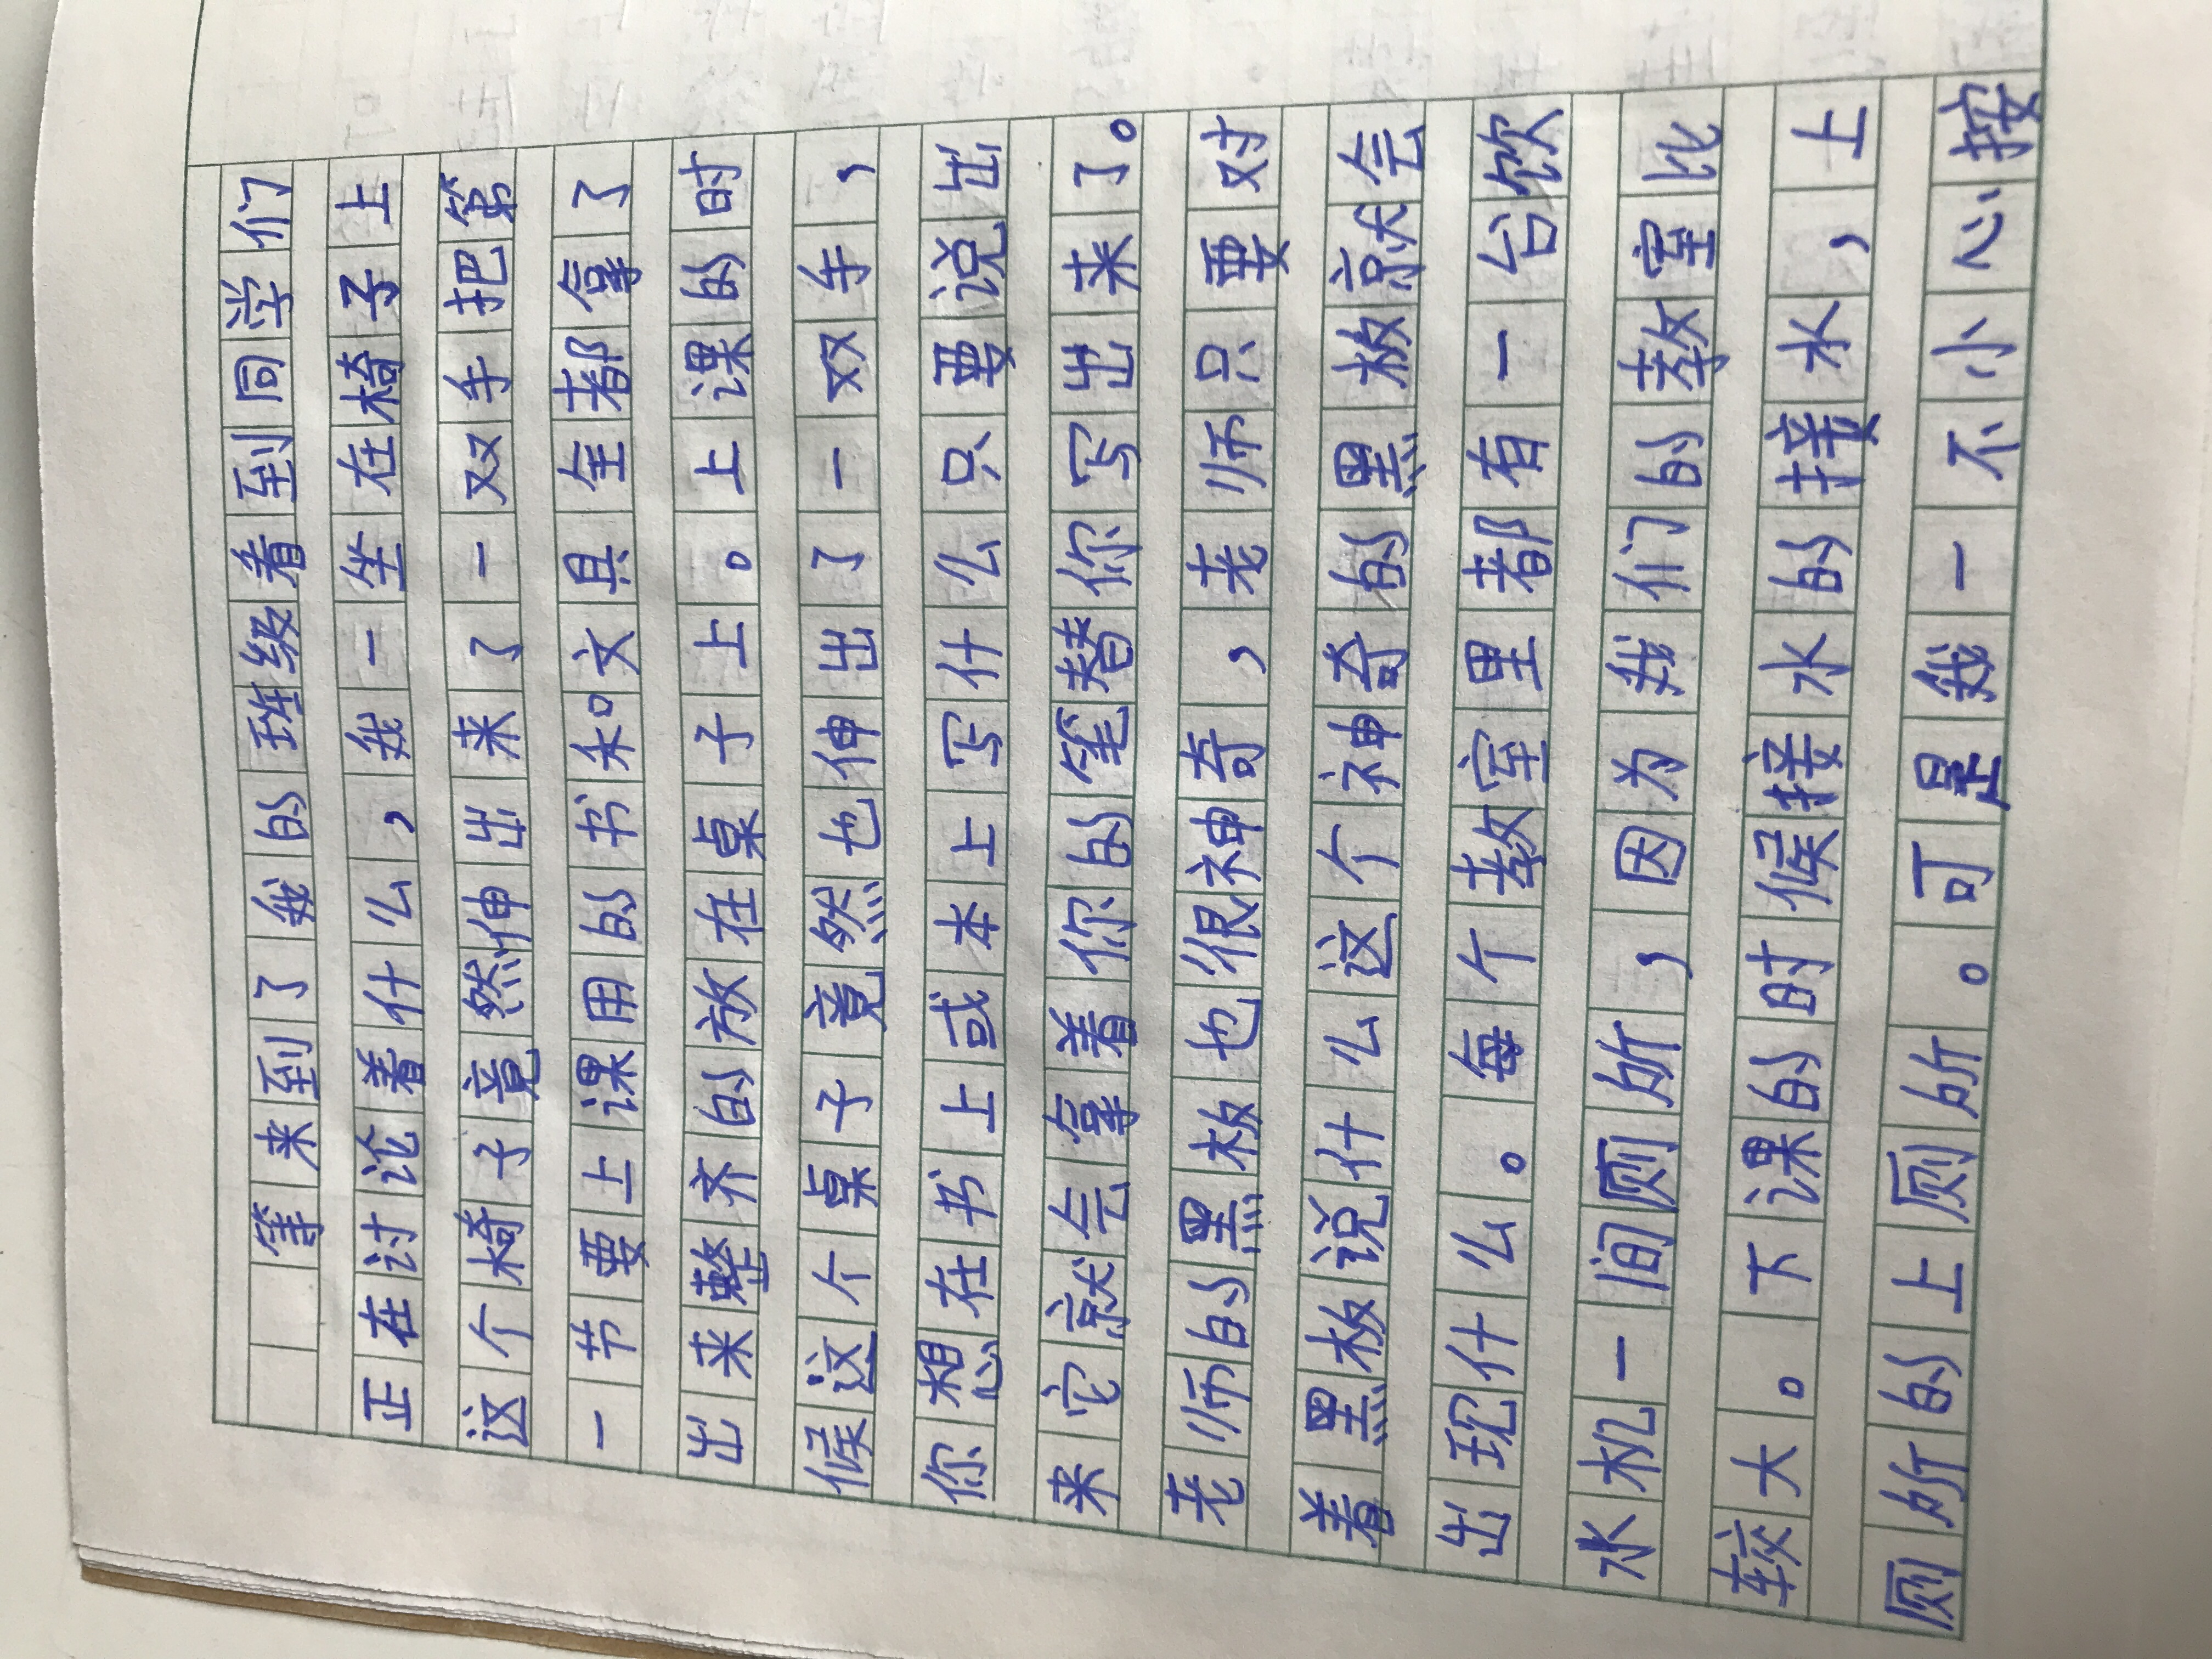 等来到了我的班级看到同学们
正在讨论着什么，我一坐在椅子上
这个椅子竟然伸出来了一双手把第
一节要上课用的书和文具全都拿了
出来整齐的放在桌子上。上课的时
候这个桌子竟然也伸出了一双手，
你想在书上或本上写什么只要说出
来它就会拿着你的笔替你写出来了。
老师的黑板也很神奇，老师只要对
着黑板说什么这个神奇的黑板就会
出现什么。每个教室里都有一台饮
水机一间厕所，因为我们的教室比
较大。下课的时候接水的接水，上
厕所的上厕所。可是我一不小心按